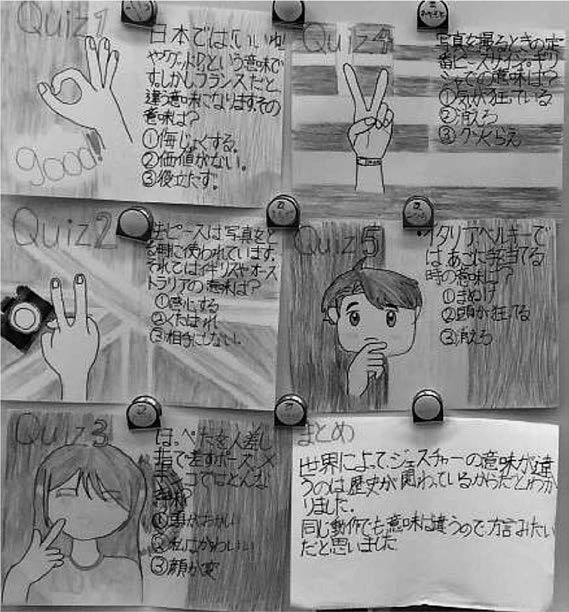 Quiz1
日本では「いいね」
やグッドという意味で
す。しかしフランスだと、
違う意味になります。その
意味は？
①侮じょくする。
②価値がない。
③役立たず。
good!
Quiz2
ピースは写真をと
る時に使われています。
それではイギリスやオース
トラリアの意味は？
②くたばれ
③相手にしない。
Quiz3
ほっぺたを人差し
指で差すポーズ、メ
キシコではどんな
意味？
①頭がおかしい
②私はかわいい
③顔が変
Quiz4
写真を撮るときの定
番ピースサイン、ギリ
シャでの意味は？
①気が狂っている
②消えろ
③クソくらえ
Quiz5
イタリアベルギーで
はあごに手当てる
時の意味は？
①まぬけ
②頭が狂ってる
③消えろ
まとめ
世界によってジェスチャーの意味が違
うのは歴史が関わっているからだとわか
りました。
同じ動作でも意味は違うので方言みたい
だと思いました